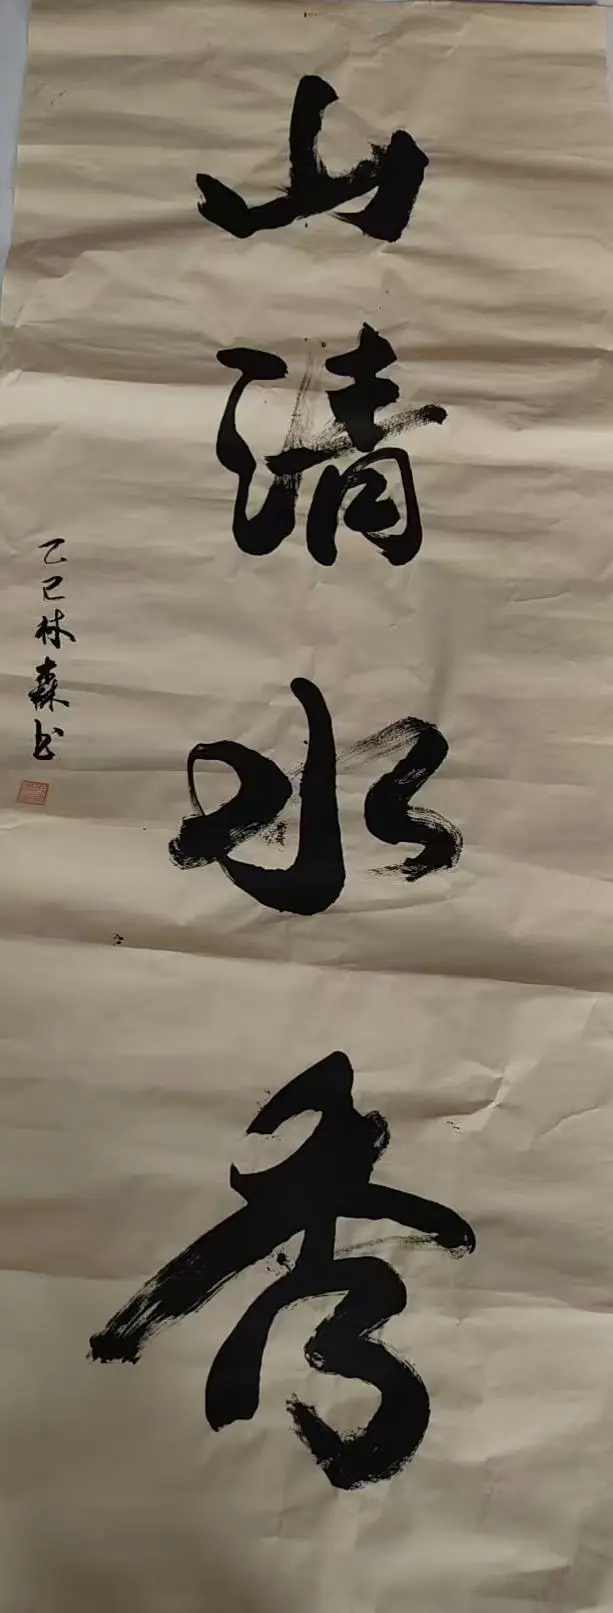 山清水秀
乙巳林森书